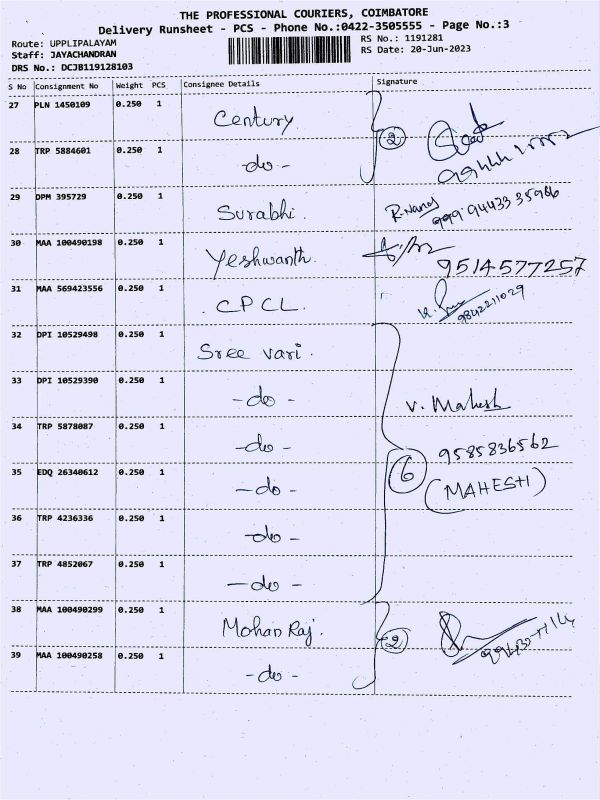 THE PROFESSIONAL COURIERS, COIMBATORE
Delivery Runsheet - PCS - Phone No.:0422-3505555 - Page No.:3
Route: UPPLIPALAYAM
Staff: JAYACHANDRAN
DRS No.: DCJB119128103
RS No.: 1191281
RS Date: 20-Jun-2023
S No Consignment No Weight PCS Consignee Details Signature
27 PLN 1450109 0.250 1 Century
28 TRP 5884601 0.250 1 -do- 2
29 DPM 395729 0.250 1 Surabhi.
30 MAA 100490198 0.250 1 Yeshwanth. 9514577257
31 MAA 569423556 0.250 1 CPCL. 9842211029
32 DPI 10529498 0.250 1 Sree vari.
33 DPI 10529390 0.250 1 -do- V. Mahesh
34 TRP 5878087 0.250 1 -do- 9585836562
35 EDQ 26340612 0.250 1 -do- 6 (MAHESH)
36 TRP 4236336 0.250 1 -do-
37 TRP 4852067 0.250 1 -do-
38 MAA 100490299 0.250 1 Mohan Raj. 2
39 MAA 100490258 0.250 1 -do-